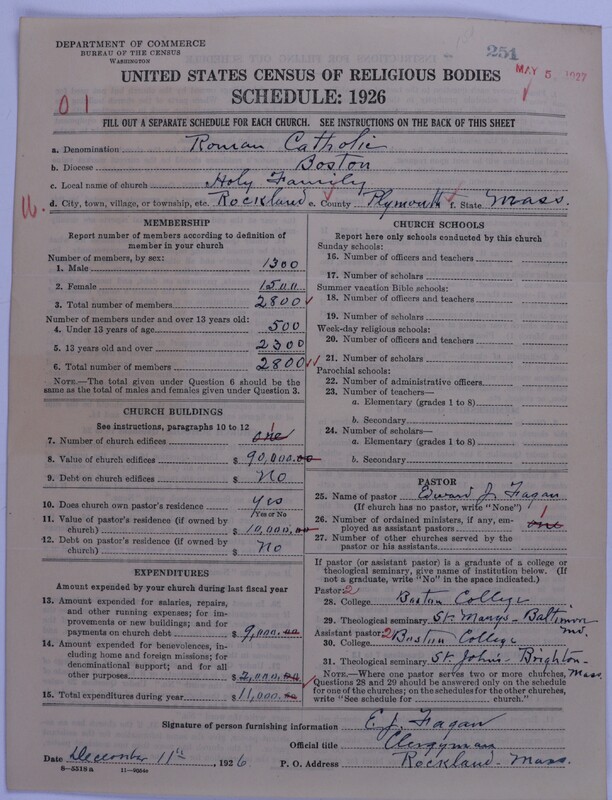 DEPARTMENT OF COMMERCE
BUREAU OF THE CENSUS
WASHINGTON
251
MAY 5 1927
UNITED STATES CENSUS OF RELIGIOUS BODIES
SCHEDULE: 1926
01
FILL OUT A SEPARATE SCHEDULE FOR EACH CHURCH. SEE INSTRUCTIONS ON THE BACK OF THIS SHEET
a. Denomination Roman Catholic
b. Diocese Boston
c. Local name of church Holy Family
d. City, town, village, or township, etc. Rockland e. County Plymouth f. State Mass.
MEMBERSHIP
Report number of members according to definition of
member in your church
Number of members, by sex:
1. Male 1300
2. Female 1500
3. Total number of members 2800
Number of members under and over 13 years old:
4. Under 13 years of age 500
5. 13 years old and over 2300
6. Total number of members 2800
NOTE.—The total given under Question 6 should be the
same as the total of males and females given under Question 3.
CHURCH BUILDINGS
See instructions, paragraphs 10 to 12
7. Number of church edifices one
8. Value of church edifices $ 90,000.00
9. Debt on church edifices $ No
10. Does church own pastor's residence? Yes
Yes or No
11. Value of pastor's residence (if owned by
church) $ 10,000.00
12. Debt on pastor's residence (if owned by
church) $ No
EXPENDITURES
Amount expended by your church during last fiscal year
13. Amount expended for salaries, repairs,
and other running expenses; for im-
provements or new buildings; and for
payments on church debt $ 9,000.00
14. Amount expended for benevolences, in-
cluding home and foreign missions; for
denominational support; and for all
other purposes $ 2,000.00
15. Total expenditures during year $ 11,000.00
CHURCH SCHOOLS
Report here only schools conducted by this church
Sunday schools:
16. Number of officers and teachers
17. Number of scholars
Summer vacation Bible schools:
18. Number of officers and teachers
19. Number of scholars
Week-day religious schools:
20. Number of officers and teachers
21. Number of scholars
Parochial schools:
22. Number of administrative officers
23. Number of teachers—
a. Elementary (grades 1 to 8)
b. Secondary
24. Number of scholars—
a. Elementary (grades 1 to 8)
b. Secondary
PASTOR
25. Name of pastor Edward J. Fagan
(If church has no pastor, write "None")
1
26. Number of ordained ministers, if any, em-
ployed as assistant pastors one
27. Number of other churches served by the
pastor or his assistants
If pastor (or assistant pastor) is a graduate of a college or
theological seminary, give name of institution below. (If
not a graduate, write "No" in the space indicated.)
Pastor: 2
28. College Boston College
29. Theological seminary St. Marys - Baltimore
Md.
Assistant pastor: 2
30. College Boston College
31. Theological seminary St. Johns - Brighton -
Mass.
NOTE.—Where one pastor serves two or more churches,
Questions 28 and 29 should be answered only on the schedule
for one of the churches; on the schedules for the other churches,
write "See schedule for church."
Signature of person furnishing information E. J. Fagan
Official title Clergyman
Date December 11th, 1926 P. O. Address Rockland - Mass.
8-5318a